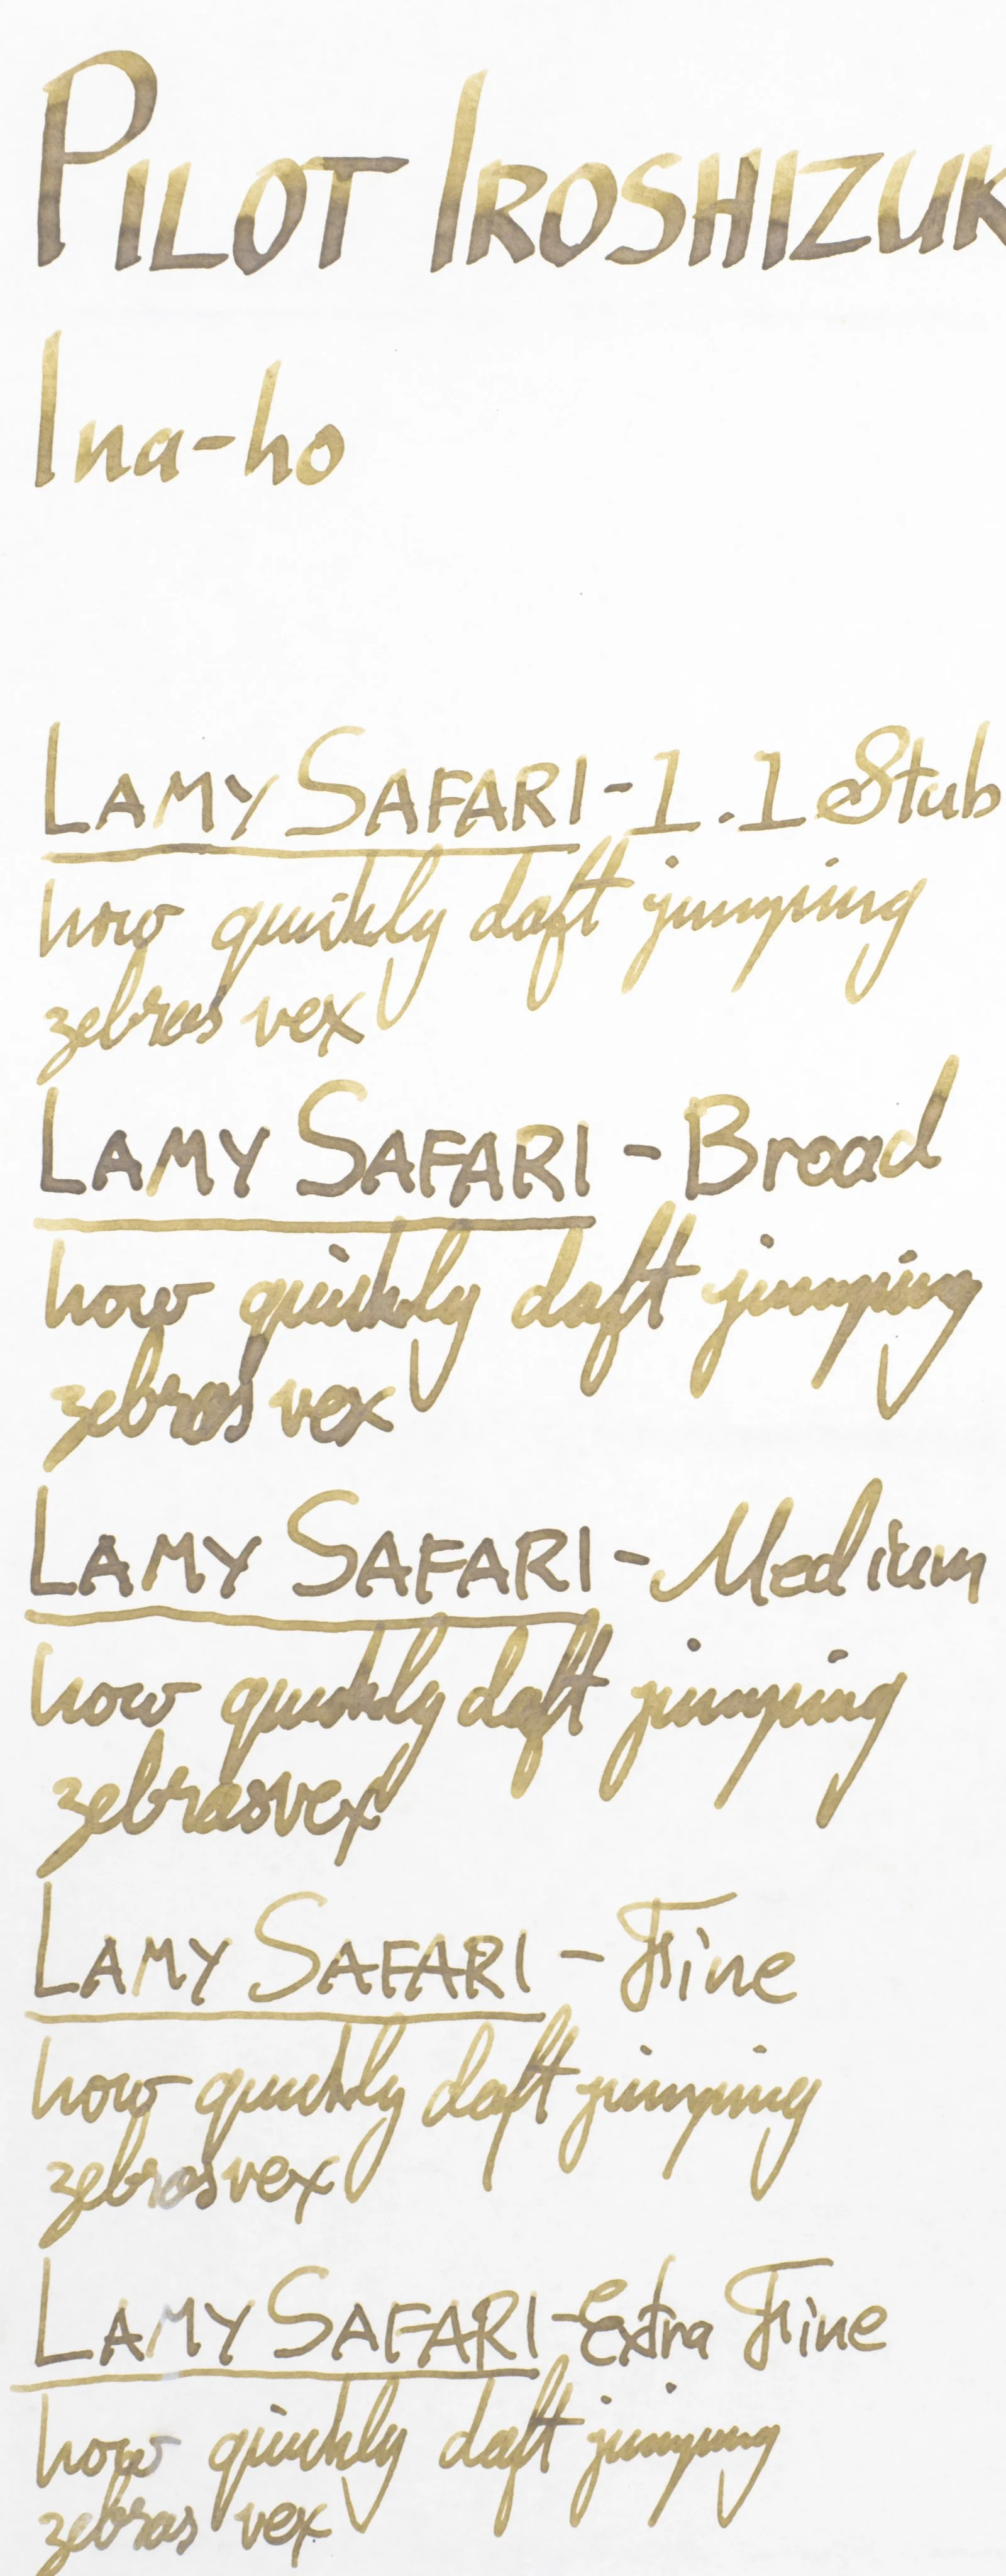 PILOT IROSHIZUK
Ina-ho
LAMY SAFARI - 1.1 Stub
how quickly daft jumping
zebras vex
LAMY SAFARI - Broad
how quickly daft jumping
zebras vex
LAMY SAFARI - Medium
how quickly daft jumping
zebras vex
LAMY SAFARI - Fine
how quickly daft jumping
zebras vex
LAMY SAFARI - Extra Fine
how quickly daft jumping
zebras vex